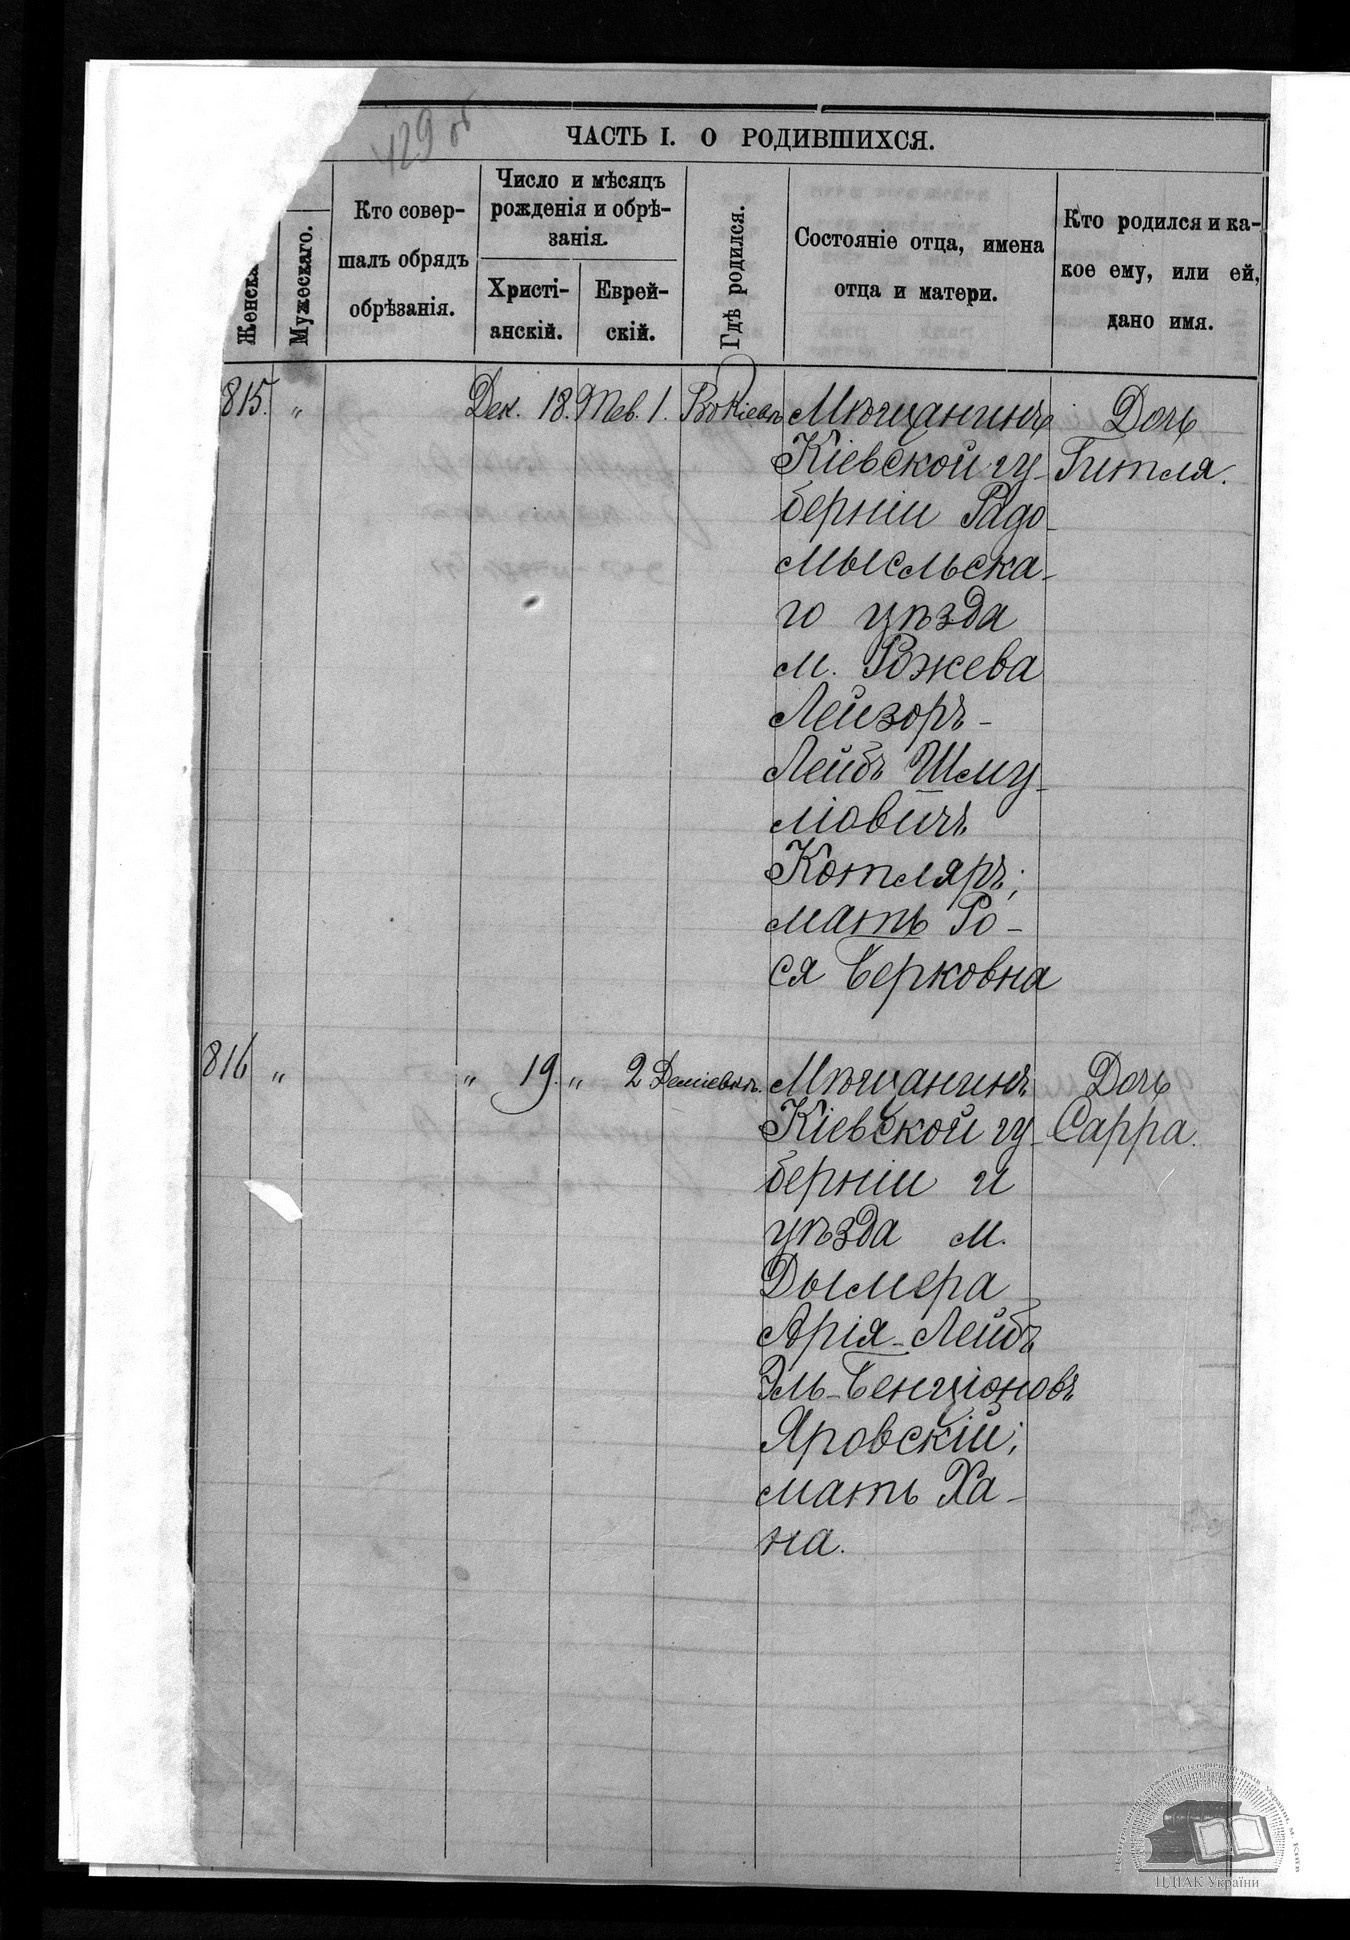 429 об
ЧАСТЬ I. О РОДИВШИХСЯ.
Женска
Мужескаго.
Кто совер-
шалъ обрядъ
обрѣзанія.
Число и мѣсяцъ
рожденія и обрѣ-
занія.
Христі-
анскій.
Еврей-
скій.
Гдѣ родился.
Состояніе отца, имена
отца и матери.
Кто родился и ка-
кое ему, или ей,
дано имя.
815. " Дек. 18. Тев. 1. Въ Кіевѣ Мѣщанинъ Дочь
Кіевской гу- Гитля.
берніи Радо-
мысльска-
го уѣзда
м. Рожева
Лейзоръ-
Лейбъ Шму-
ліовичъ
Котляръ;
мать Ро-
ся Берковна
816 " " 19. " 2 Деміевкѣ. Мѣщанинъ Дочь
Кіевской гу- Сарра.
берніи и
уѣзда м.
Дымера
Арія-Лейбъ
Эль-Бенціоновъ
Яровскій;
мать Ха-
на.
ЦДІАК України